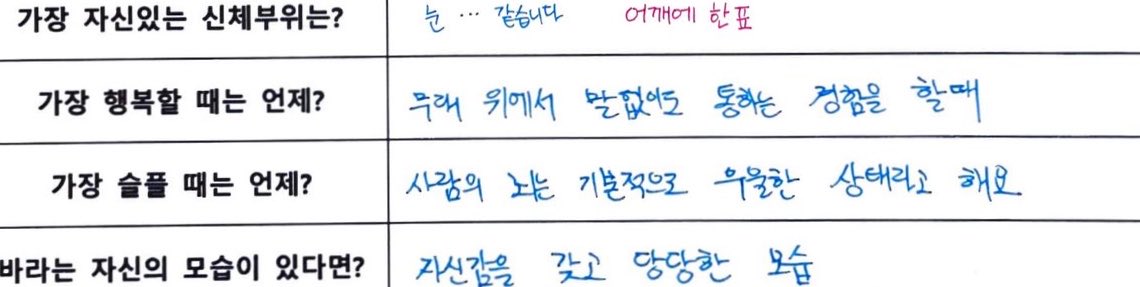 가장 자신있는 신체부위는? 눈 … 같습니다 어깨에 한표
가장 행복할 때는 언제? 무대 위에서 말없이도 통하는 경험을 할때
가장 슬플 때는 언제? 사람의 뇌는 기본적으로 우울한 상태라고 해요
바라는 자신의 모습이 있다면? 자신감을 갖고 당당한 모습